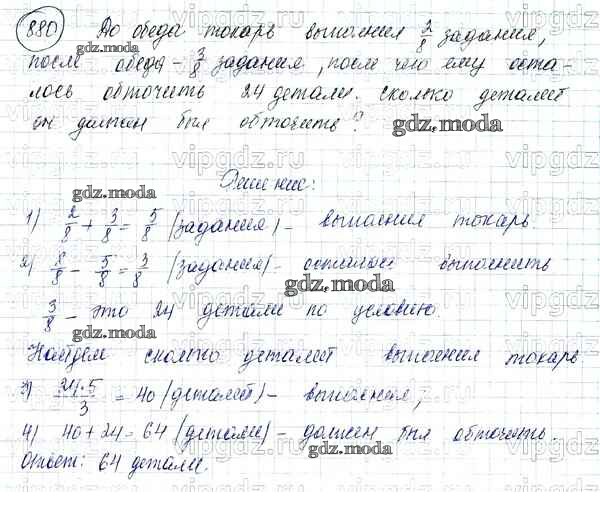 880 До обеда токарь выполнил 2/8 задания,
после обеда - 3/8 задания, после чего ему оста-
лось обточить 24 детали. Сколько деталей
он должен был обточить?
Решение:
1) 2/8 + 3/8 = 5/8 (задания) - выполнил токарь.
2) 8/8 - 5/8 = 3/8 (задания) - осталось выполнить
3/8 - это 24 детали по условию.
Найдем сколько деталей выполнил токарь
3) 24·5/3 = 40 (деталей) - выполнил,
4) 40+24=64 (детали) - должен был обточить.
Ответ: 64 детали.
gdz.moda
gdz.moda
gdz.moda
gdz.moda
gdz.moda
gdz.moda
gdz.moda
vipgdz.ru